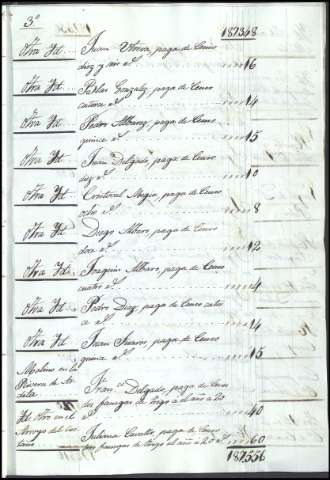 3º
187348
Otra Yd. Juan Utrera, paga de Censo
diez y seis rs. 16
Otra Yd. Pablas Gonzalez, paga de Censo
catorce rs. 14
Otra Yd. Pedro Albarez, paga de Censo
quince rs. 15
Otra Yd. Juan Delgado, paga de Censo
diez rs. 10
Otra Yd. Cristoval Negro, paga de Censo
ocho rs. 8
Otra Yd. Diego Albaro, paga de Censo
doce rs. 12
Otra Yd. Joaquin Albaro, paga de Censo
cuatro rs. 4
Otra Yd. Pedro Diaz, paga de Censo cator
ce rs. 14
Otra Yd. Juan Suarez, paga de Censo
quince rs. 15
Molino en la
Rivera de
Franco. Delgado, paga de Censo
dos fanegas de trigo al año á 20 40
Yd. Otro en el
Arroyo del
Juliana, paga de Censo
tres fanegas de trigo al año á 20 rs. 60
187556